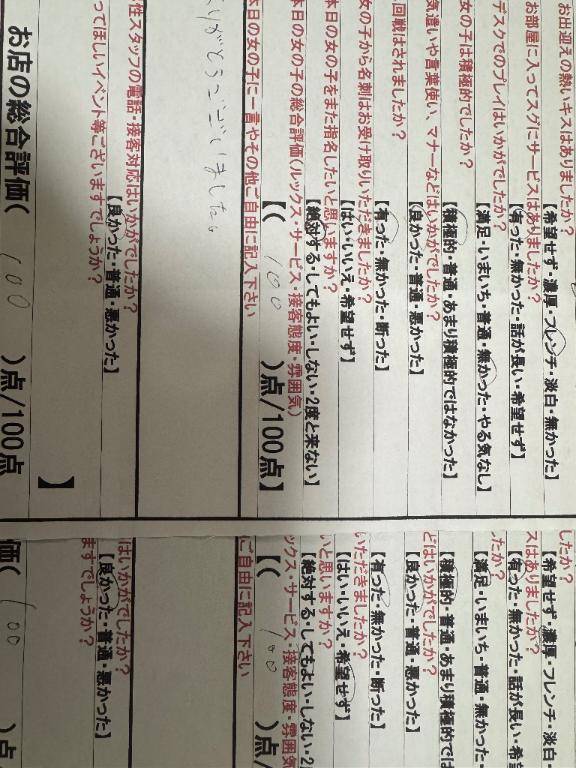 お出迎えの熱いキスはありましたか?
【希望せず・濃厚・フレンチ・淡白・無かった】
お部屋に入ってスグにサービスはありましたか?
【有った・無かった・話が長い・希望せず】
デスクでのプレイはいかがでしたか?
【満足・いまいち・普通・無かった・やる気なし】
女の子は積極的でしたか?
【積極的・普通・あまり積極的ではなかった】
気遣いや言葉使い、マナーなどはいかがでしたか?
【良かった・普通・悪かった】
回戦はされましたか?
【有った・無かった・断った】
女の子から名刺はお受け取りいただきましたか?
【はい・いいえ・希望せず】
本日の女の子をまた指名したいと思いますか?
【絶対する・してもよい・しない・2度と来ない】
本日の女の子の総合評価(ルックス・サービス・接客態度・雰囲気)
【( 100 )点/100点】
本日の女の子に一言やその他ご自由に記入下さい
ありがとうございました。
性スタッフの電話・接客対応はいかがでしたか?
【良かった・普通・悪かった】
ってほしいイベント等ございますでしょうか?
】
お店の総合評価( 100 )点/100点
したか?
【希望せず・濃厚・フレンチ・淡白・
スはありましたか?
【有った・無かった・話が長い・希
たか?
【満足・いまいち・普通・無かった・
【積極的・普通・あまり積極的では
どはいかがでしたか?
【良かった・普通・悪かった】
【有った・無かった・断った】
いただきましたか?
【はい・いいえ・希望せず】
いと思いますか?
【絶対する・してもよい・しない・2
ックス・サービス・接客態度・雰囲気
【( 100 )点/
ご自由に記入下さい
はいかがでしたか?
【良かった・普通・悪かった】
ますでしょうか?
価( 100 )点